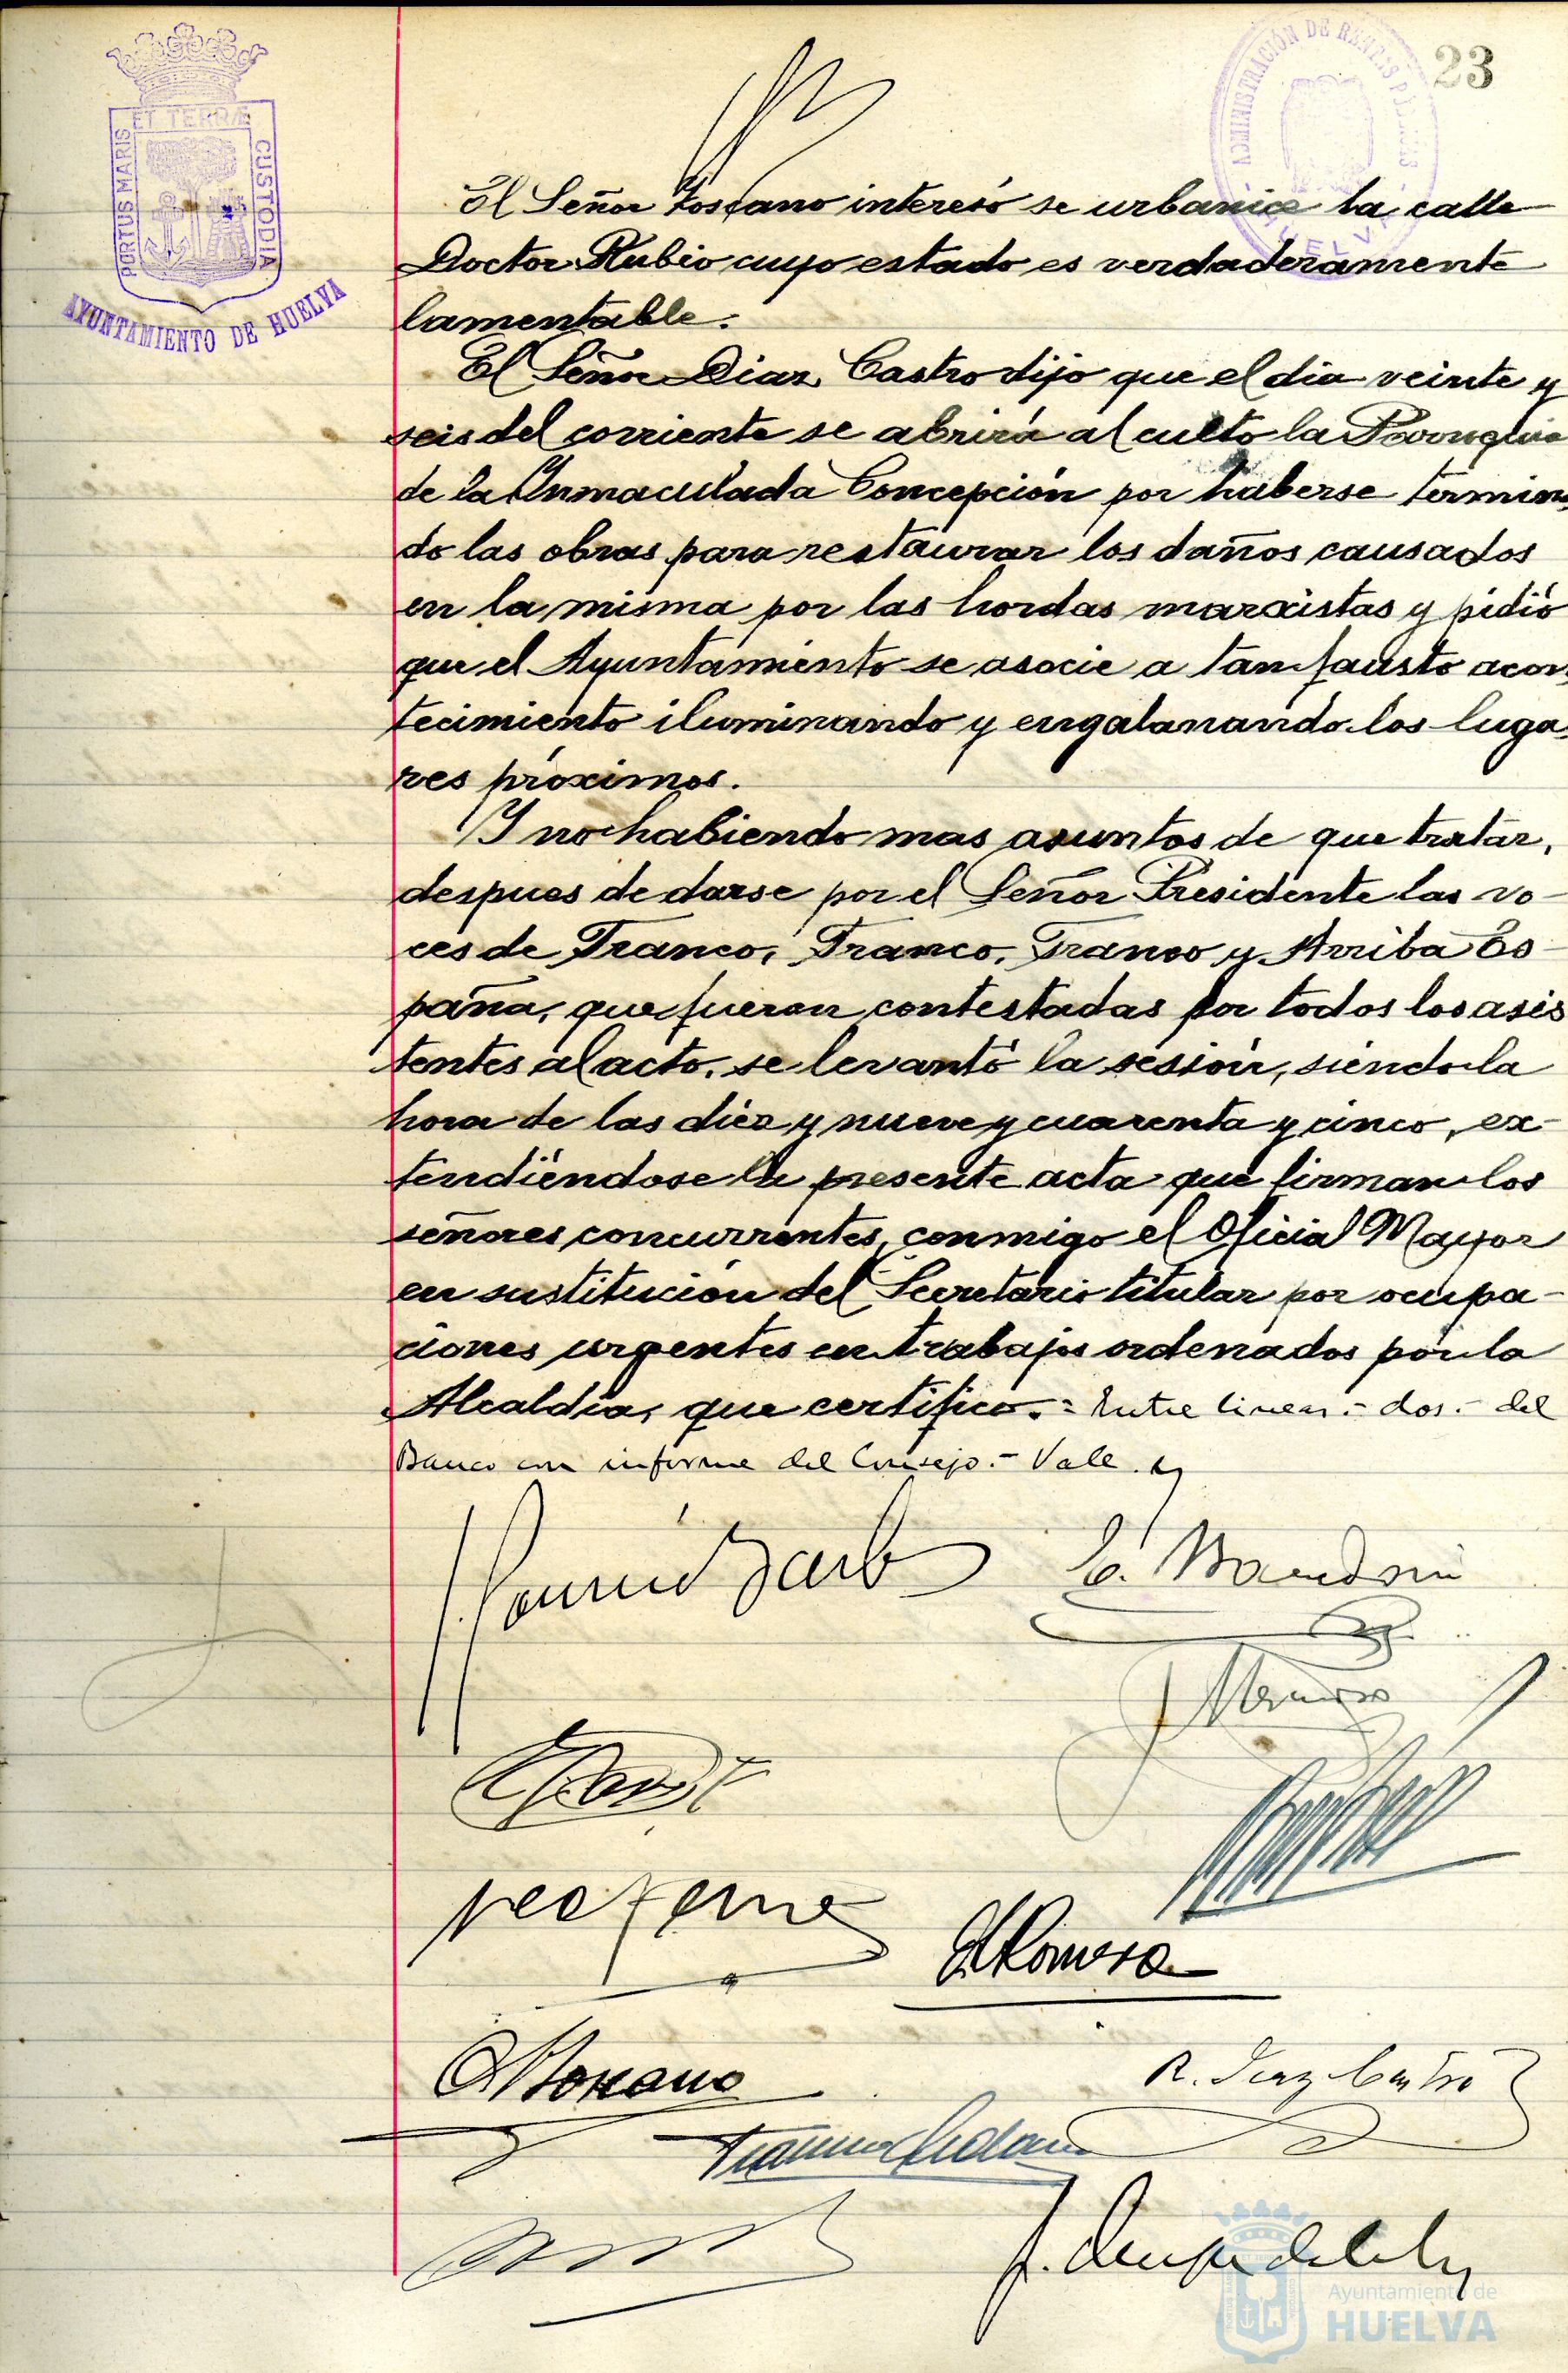 23
PORTUS MARIS ET TERRÆ CUSTODIA
AYUNTAMIENTO DE HUELVA
ADMINISTRACIÓN DE RENTAS PÚBLICAS
HUELVA
El Señor Toscano interesó se urbanice la calle
Doctor Rubio cuyo estado es verdaderamente
lamentable.
El Señor Diaz Castro dijo que el dia veinte y
seis del corriente se abrirá al culto la Parroquia
de la Inmaculada Concepción por haberse termina
do las obras para restaurar los daños causados
en la misma por las hordas marxistas y pidió
que el Ayuntamiento se asocie a tan fausto acon
tecimiento iluminando y engalanando los luga-
res próximos.
Y no habiendo mas asuntos de que tratar,
despues de darse por el Señor Presidente las vo-
ces de Franco, Franco, Franco y Arriba Es-
paña, que fueron contestadas por todos los asis
tentes al acto, se levantó la sesión, siendo la
hora de las diez y nueve y cuarenta y cinco, ex-
tendiéndose la presente acta que firman los
señores concurrentes, conmigo el Oficial Mayor
en sustitución del Secretario titular por ocupa-
ciones urgentes en trabajos ordenados por la
Alcaldía, que certifico.= Entre lineas.- dos.- del
Banco con informe del Consejo.- Vale.
A Romero
Toscano
R. Diaz Castro
Ayuntamiento de
HUELVA